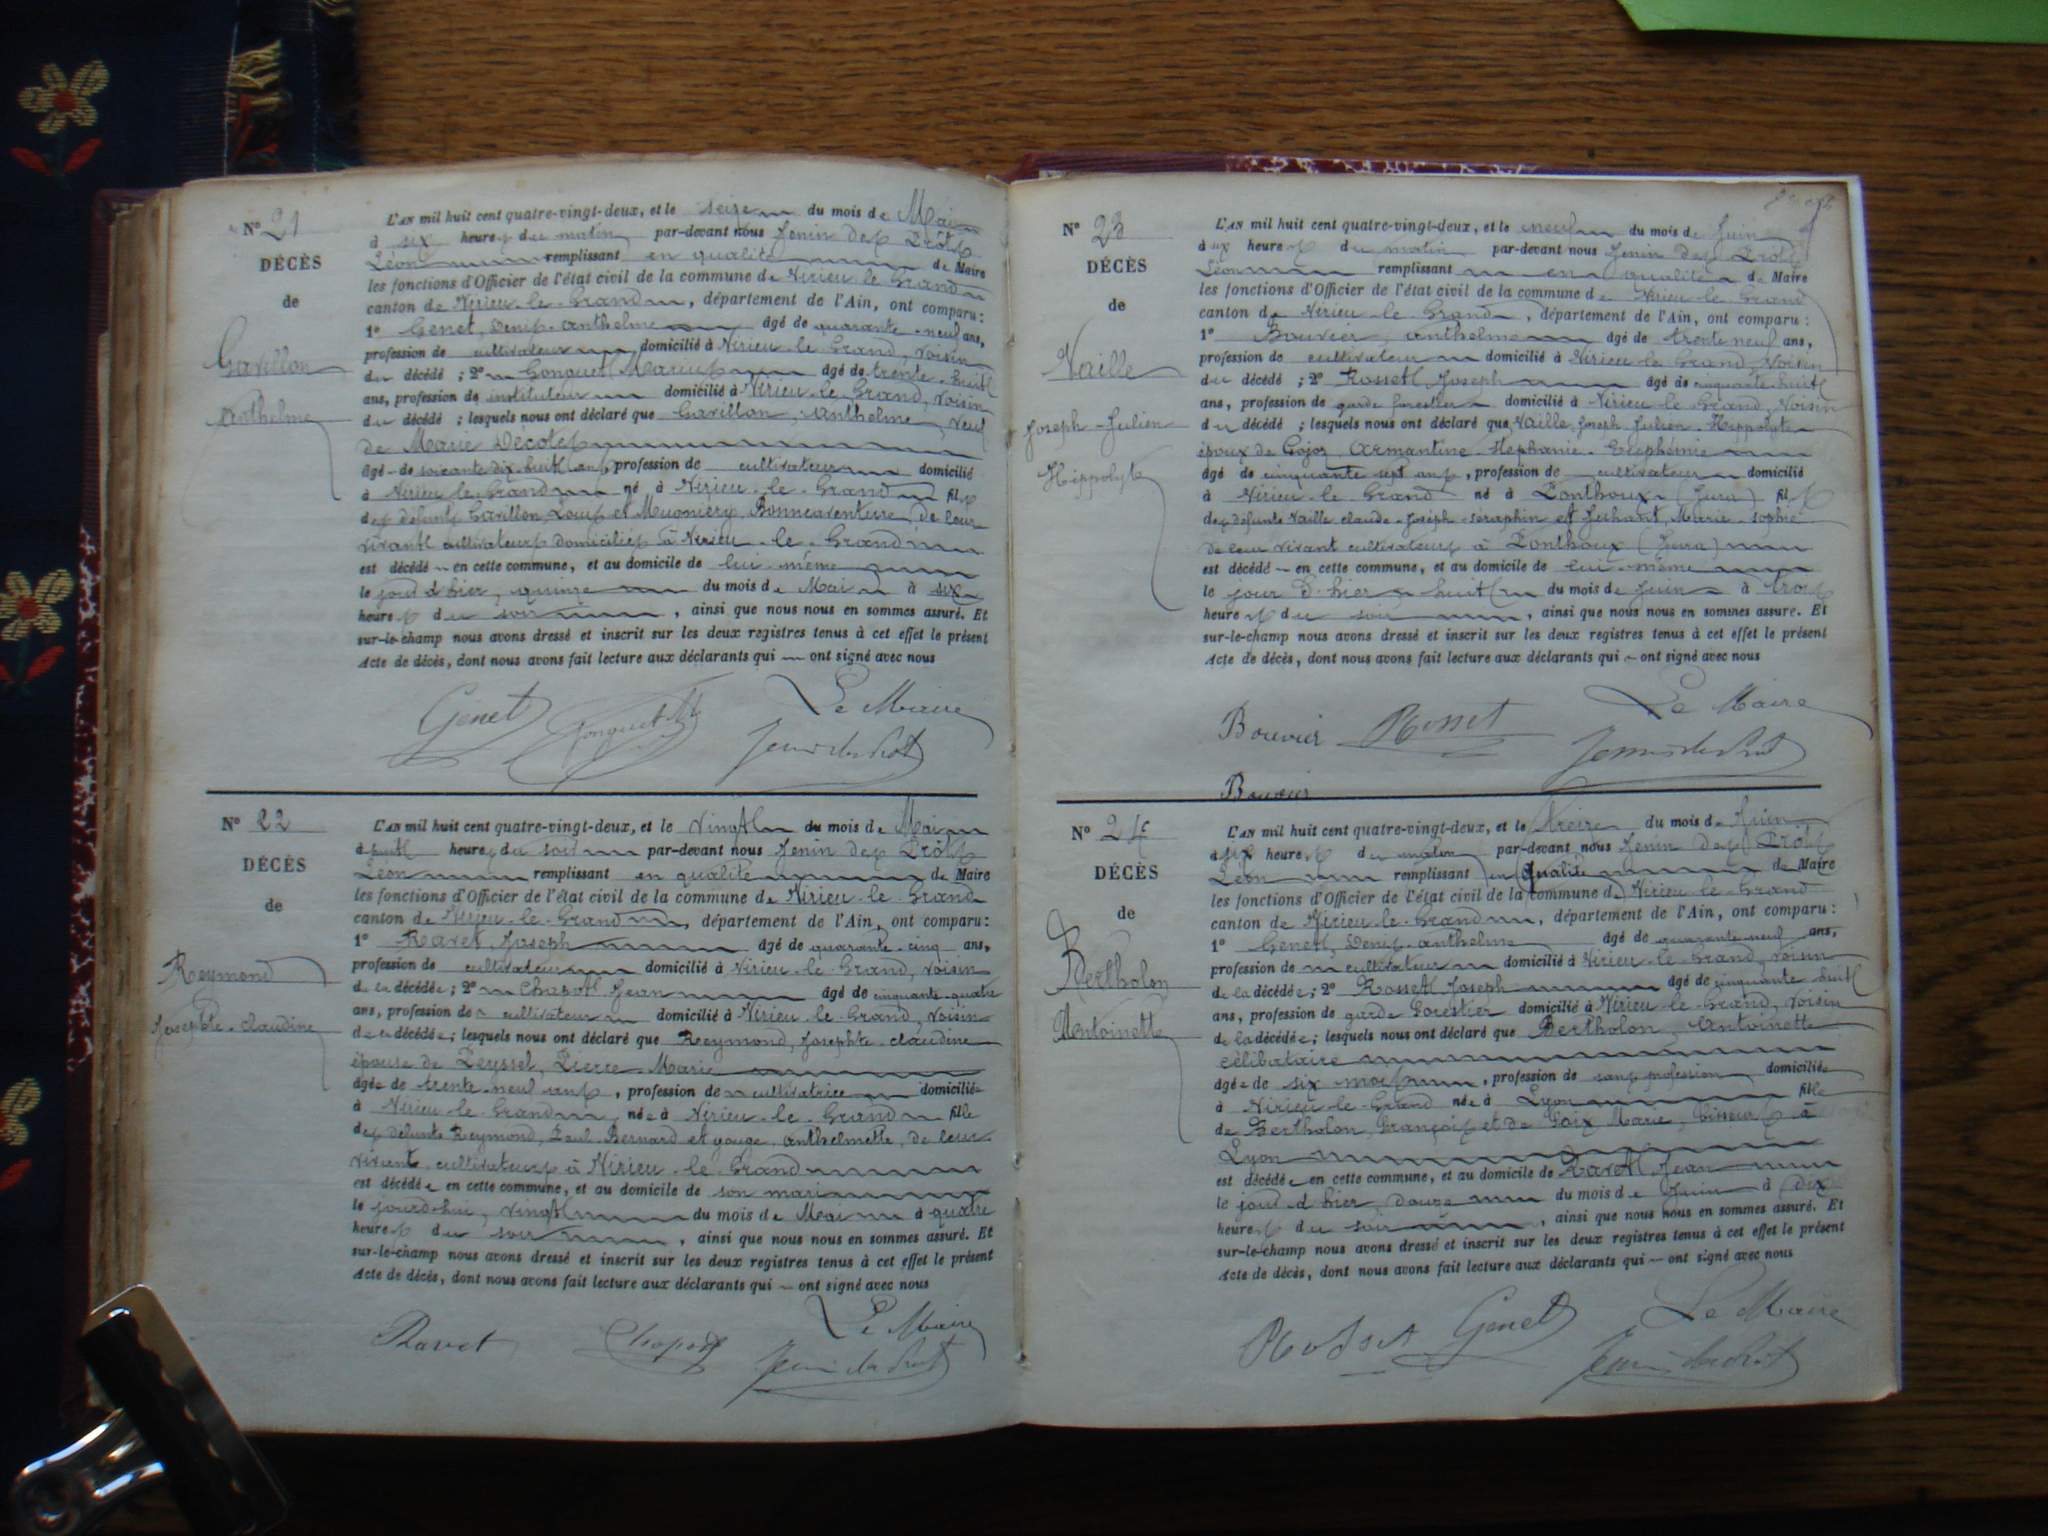 N° 21
DÉCÈS
de
Gavillon
Anthelme
L'AN mil huit cent quatre-vingt-deux, et le seize du mois de Mai
à six heures du matin par-devant nous Jenin des Prôts
Léon remplissant en qualité de Maire
les fonctions d'Officier de l'état civil de la commune de Virieu le Grand
canton de Virieu-le-Grand, département de l'Ain, ont comparu:
1° Genet, Denis-Anthelme âgé de quarante-neuf ans,
profession de cultivateur domicilié à Virieu-le-Grand, voisin
du décédé; 2° Gonguet Marius âgé de trente-huit
ans, profession de instituteur domicilié à Virieu-le-Grand, voisin
du décédé; lesquels nous ont déclaré que Gavillon, Anthelme, veuf
de Marie Décotes
âgé de soixante dix-huit ans, profession de cultivateur domicilié
à Virieu-le-Grand né à Virieu-le-Grand fils
des défunts Gavillon, Louis et Mugniery, Bonnaventure, de leur
vivant cultivateurs domiciliés à Virieu-le-Grand
est décédé en cette commune, et au domicile de lui-même
le jour d'hier, quinze du mois de Mai à six
heures du soir, ainsi que nous nous en sommes assuré. Et
sur-le-champ nous avons dressé et inscrit sur les deux registres tenus à cet effet le présent
Acte de décès, dont nous avons fait lecture aux déclarants qui ont signé avec nous
Genet Gonguet M Le Maire
Jenin des Prôts
N° 22
DÉCÈS
de
Reymond
Josephte-Claudine
L'AN mil huit cent quatre-vingt-deux, et le vingt du mois de Mai
à huit heures du soir par-devant nous Jenin des Prôts
Léon remplissant en qualité de Maire
les fonctions d'Officier de l'état civil de la commune de Virieu-le-Grand
canton de Virieu-le-Grand, département de l'Ain, ont comparu:
1° Ravet, Joseph âgé de quarante-cinq ans,
profession de cultivateur domicilié à Virieu-le-Grand, voisin
de la décédée; 2° Chapot Jean âgé de cinquante-quatre
ans, profession de cultivateur domicilié à Virieu-le-Grand, voisin
de la décédée; lesquels nous ont déclaré que Reymond, Josephte-Claudine
épouse de Peyssel, Pierre-Marie
âgée de trente-neuf ans, profession de cultivatrice domiciliée
à Virieu-le-Grand née à Virieu-le-Grand fille
des défunts Reymond, Paul-Bernard et Gouge, Anthelmette, de leur
vivant cultivateurs à Virieu-le-Grand
est décédée en cette commune, et au domicile de son mari
le jourd'hui, vingt du mois de Mai à quatre
heures du soir, ainsi que nous nous en sommes assuré. Et
sur-le-champ nous avons dressé et inscrit sur les deux registres tenus à cet effet le présent
Acte de décès, dont nous avons fait lecture aux déclarants qui ont signé avec nous
Ravet Chapot Le Maire
Jenin des Prôts
N° 23
DÉCÈS
de
Vaille
Joseph-Julien
Hippolyte
L'AN mil huit cent quatre-vingt-deux, et le neuf du mois de Juin
à six heures du matin par-devant nous Jenin des Prôts
Léon remplissant en qualité de Maire
les fonctions d'Officier de l'état civil de la commune de Virieu-le-Grand
canton de Virieu-le-Grand, département de l'Ain, ont comparu:
1° Bouvier, Anthelme âgé de trente neuf ans,
profession de cultivateur domicilié à Virieu-le-Grand, voisin
du décédé; 2° Rosset, Joseph âgé de cinquante-huit
ans, profession de garde forestier domicilié à Virieu-le-Grand, voisin
du décédé; lesquels nous ont déclaré que Vaille, Joseph-Julien-Hippolyte
époux de Gojoz, Armantine-Stéphanie-Eléphémie
âgé de cinquante sept ans, profession de cultivateur domicilié
à Virieu-le-Grand né à Ponthoux (Jura) fils
des défunts Vaille Claude-Joseph-Séraphin et Juhant, Marie-Sophie
de leur vivant cultivateurs à Ponthoux (Jura)
est décédé en cette commune, et au domicile de lui-même
le jour d'hier huit du mois de Juin à trois
heures du soir, ainsi que nous nous en sommes assuré. Et
sur-le-champ nous avons dressé et inscrit sur les deux registres tenus à cet effet le présent
Acte de décès, dont nous avons fait lecture aux déclarants qui ont signé avec nous
Bouvier Rosset Le Maire
Jenin des Prôts
Bouvier
N° 24
DÉCÈS
de
Bertholon
Antoinette
L'AN mil huit cent quatre-vingt-deux, et le treize du mois de Juin
à six heures du matin par-devant nous Jenin des Prôts
Léon remplissant en qualité de Maire
les fonctions d'Officier de l'état civil de la commune de Virieu-le-Grand
canton de Virieu-le-Grand, département de l'Ain, ont comparu:
1° Genet, Denis-Anthelme âgé de quarante-neuf ans,
profession de cultivateur domicilié à Virieu-le-Grand, voisin
de la décédée; 2° Rosset Joseph âgé de cinquante huit
ans, profession de garde forestier domicilié à Virieu-le-Grand, voisin
de la décédée; lesquels nous ont déclaré que Bertholon, Antoinette
célibataire
âgée de six mois, profession de sans profession domiciliée
à Virieu-le-Grand née à Lyon fille
de Bertholon, François et de Goix Marie, tisseurs à
Lyon
est décédée en cette commune, et au domicile de Ravet Jean
le jour d'hier douze du mois de Juin à dix
heures du soir, ainsi que nous nous en sommes assuré. Et
sur-le-champ nous avons dressé et inscrit sur les deux registres tenus à cet effet le présent
Acte de décès, dont nous avons fait lecture aux déclarants qui ont signé avec nous
Rosset Genet Le Maire
Jenin des Prôts